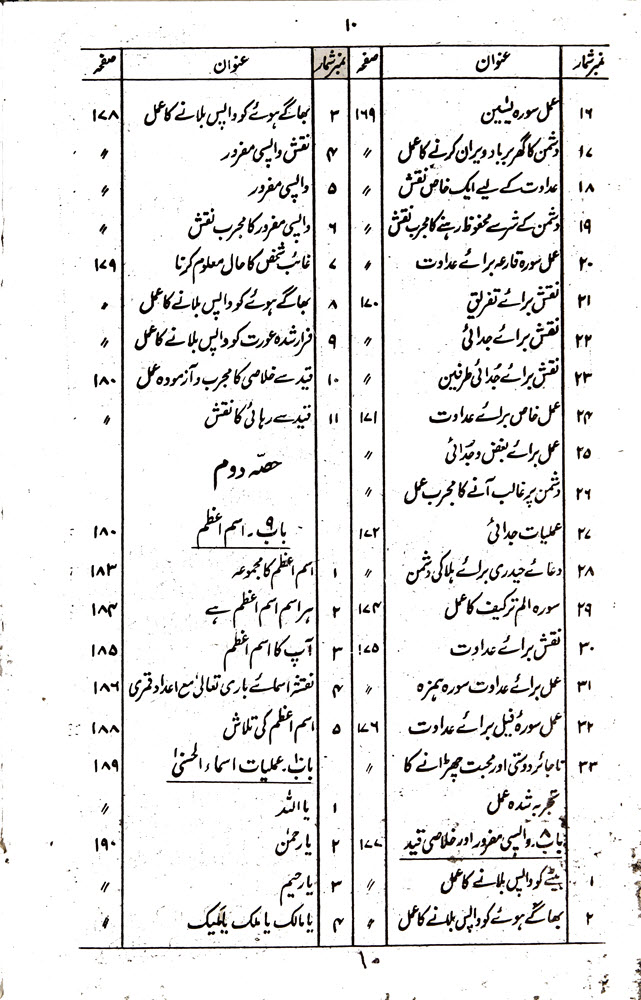 ۱۰
نمبر شمار عنوان صفحہ
۱۶ عمل سورہ یٰسین ۱۶۹
۱۷ دشمن کا گھر برباد ویران کرنے کا عمل 〃
۱۸ عداوت کے لیے ایک خاص نقش 〃
۱۹ دشمن کے شر سے محفوظ رہنے کا مجرب نقش 〃
۲۰ عمل سورہ قارعہ برائے عداوت 〃
۲۱ نقش برائے تفریق ۱۷۰
۲۲ نقش برائے جدائی 〃
۲۳ نقش برائے جُدائی طرفین 〃
۲۴ عمل خاص برائے عداوت ۱۷۱
۲۵ عمل برائے بغض و جُدائی 〃
۲۶ دشمن پر غالب آنے کا مجرب عمل 〃
۲۷ عملیات جدائی ۱۷۲
۲۸ دعائے حیدری برائے ہلاکی دشمن 〃
۲۹ سورہ الم ترکیف کا عمل ۱۷۴
۳۰ نقش برائے عداوت ۱۷۵
۳۱ عمل برائے عداوت سورہ ہمزہ 〃
۳۲ عمل سورۂ فیل برائے عداوت ۱۷۶
۳۳ ناجائز دوستی اور محبت چھڑانے کا 〃
تجربہ شدہ عمل
باب ۸۔ واپسی مفرور اور خلاصی قید ۱۷۷
۱ بیٹے کو واپس بلانے کا عمل 〃
۲ بھاگے ہوئے کو واپس بلانے کا عمل 〃
نمبر شمار عنوان صفحہ
۳ بھاگے ہوئے کو واپس بلانے کا عمل ۱۷۸
۴ نقش واپسی مفرور 〃
۵ واپسی مفرور 〃
۶ واپسی مفرور کا مجرب نقش 〃
۷ غائب شخص کا حال معلوم کرنا ۱۷۹
۸ بھاگے ہوئے کو واپس بلانے کا عمل 〃
۹ فرار شدہ عورت کو واپس بلانے کا عمل 〃
۱۰ قید سے خلاصی کا مجرب و آزمودہ عمل ۱۸۰
۱۱ قید سے رہائی کا نقش 〃
حصّہ دوم
باب ۹۔ اسم اعظم ۱۸۰
۱ اسم اعظم کا مجموعہ ۱۸۳
۲ ہر اسم اسم اعظم ہے ۱۸۴
۳ آپ کا اسم اعظم ۱۸۵
۴ نقشہ اسمائے باری تعالیٰ مع اعداد قمری ۱۸۶
۵ اسم اعظم کی تلاش ۱۸۸
باب ۱۰۔ عملیات اسماء الحسنیٰ ۱۸۹
۱ یا اللہ 〃
۲ یا رحمٰن ۱۹۰
۳ یا رحیم 〃
۴ یا مالک یا ملک یا ملیک 〃
۱۰